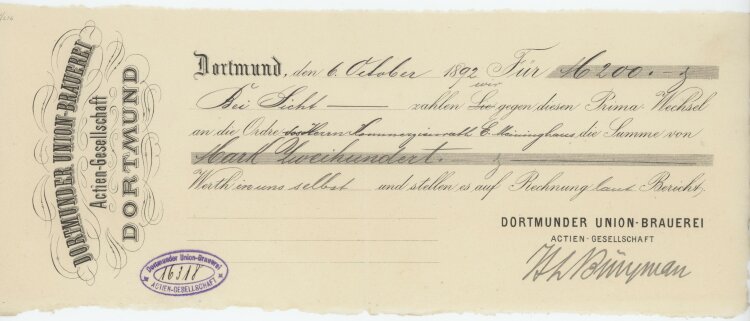 DORTMUNDER UNION-BRAUEREI
Actien-Gesellschaft
DORTMUND
Dortmund, den 6. October 1892 Für M 200.-
wir
Bei Sicht zahlen Sie gegen diesen Prima Wechsel
an die Ordre des Herrn Commerzienrath E. Meininghaus, die Summe von
Mark Zweihundert.
Werth in uns selbst und stellen es auf Rechnung laut Bericht,
DORTMUNDER UNION-BRAUEREI
ACTIEN-GESELLSCHAFT
Dortmunder Union-Brauerei
16318
ACTIEN-GESELLSCHAFT